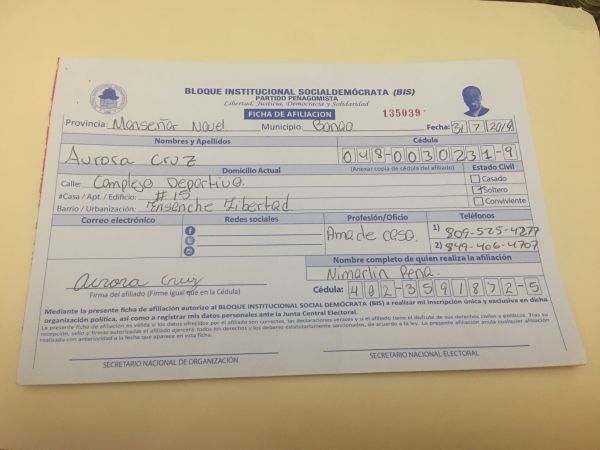 BLOQUE INSTITUCIONAL SOCIALDEMÓCRATA (BIS)
PARTIDO PEÑAGOMISTA
Libertad, Justicia, Democracia y Solidaridad
FICHA DE AFILIACION
135039
Provincia: Monseñor Nouel Municipio: Bonao Fecha: 31/7/2019
Nombres y Apellidos Cédula
Aurora Cruz 048-0030231-9
Domicilio Actual (Anexar copia de cédula del afiliado) Estado Civil
Calle: Complejo Deportivo. Casado
#Casa / Apt. / Edificio: #15 Soltero
Barrio / Urbanización: Ensanche Libertad Conviviente
Correo electrónico Redes sociales Profesión/Oficio Teléfonos
Ama de casa. 1) 809-525-4277
2) 849-406-4707
Nombre completo de quien realiza la afiliación
Nimarlin Peña.
Aurora Cruz
Firma del afiliado (Firme igual que en la Cédula) Cédula: 402-3591872-5
Mediante la presente ficha de afiliación autorizo al BLOQUE INSTITUCIONAL SOCIAL DEMÓCRATA (BIS) a realizar mi inscripción única y exclusiva en dicha
organización política, así como a registrar mis datos personales ante la Junta Central Electoral.
La presente ficha de afiliación es válida si los datos ofrecidos por el afiliado son correctos, las declaraciones veraces y si el afiliado tiene el disfrute de sus derechos civiles y políticos. Tras su
recepción, sello y firmas autorizadas el afiliado ejercerá todos los derechos y los deberes estatutariamente sancionados, de acuerdo a la ley. La presente afiliación anula cualquier afiliación
realizada con anterioridad a la fecha que aparece en esta ficha.
SECRETARIO NACIONAL DE ORGANIZACIÓN SECRETARIO NACIONAL ELECTORAL